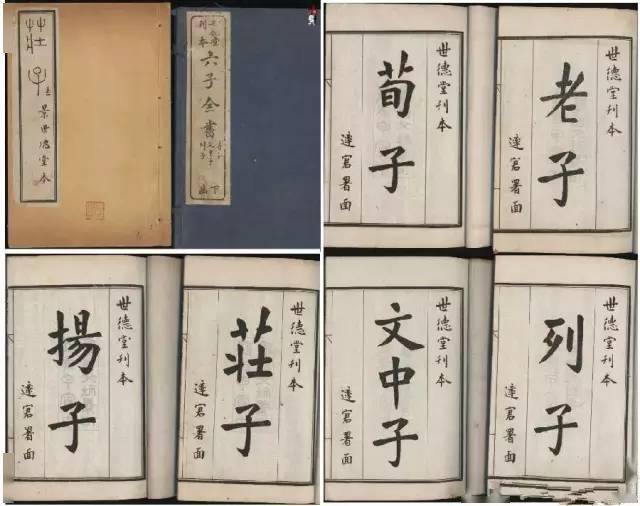 莊子
景世德堂本
世德堂
刊本
六子全書
荀子
文中子
列子
下函
世德堂刊本
荀子
達官署面
世德堂刊本
老子
達官署面
世德堂刊本
揚子
達官署面
世德堂刊本
莊子
達官署面
世德堂刊本
文中子
達官署面
世德堂刊本
列子
達官署面